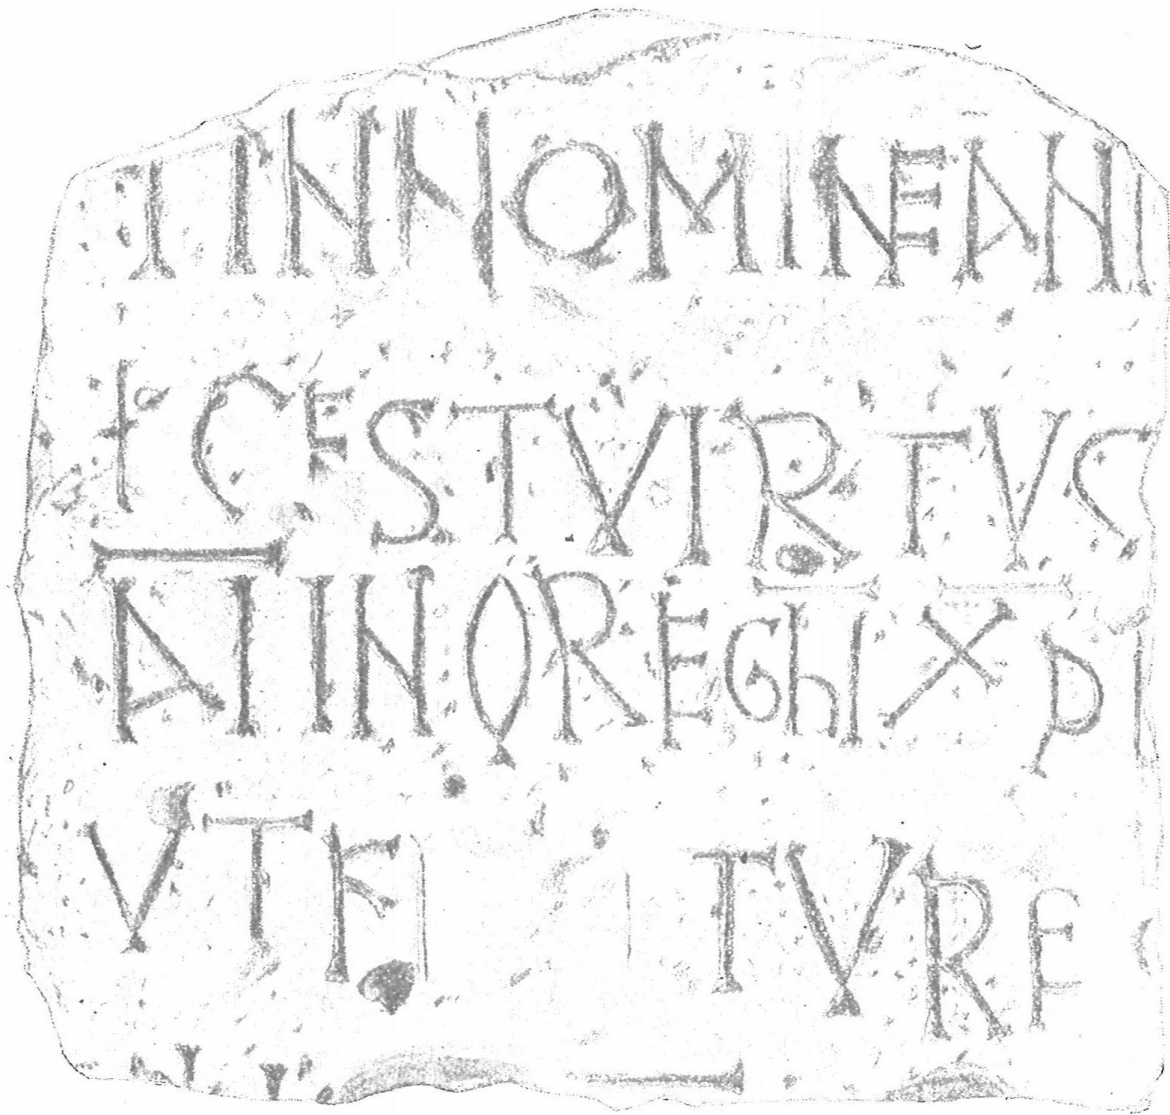 IINNOMINEANI
ICESTVIRTVS
AIINOREGhIXPI
VTF TVRE